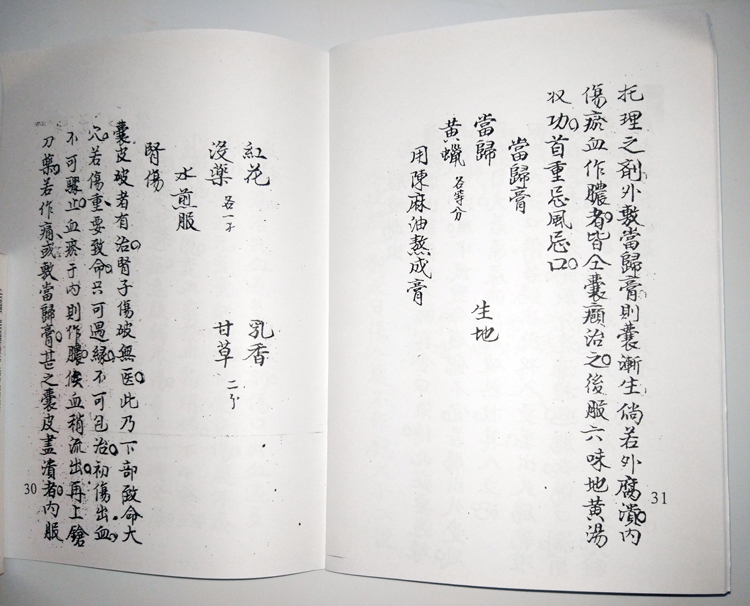 紅花 乳香
沒藥 各一 甘草 二
水煎服
腎傷
囊皮破者有治腎子傷破無医此乃下部致命大
穴若傷重要致命只可遇緣不可包治初傷出血
不可驟止血瘀于內則作膿俟血稍流出再上鎗
刀藥若作痛或敷當歸膏甚之囊皮盡潰者內服
30
托理之劑外敷當歸膏則囊漸生倘若外腐潰內
傷瘀血作膿者皆仝囊治之後服六味地黃湯
収功首重忌風忌口
當歸膏
當歸 生地
黃蠟 各等分
用陳麻油熬成膏
31